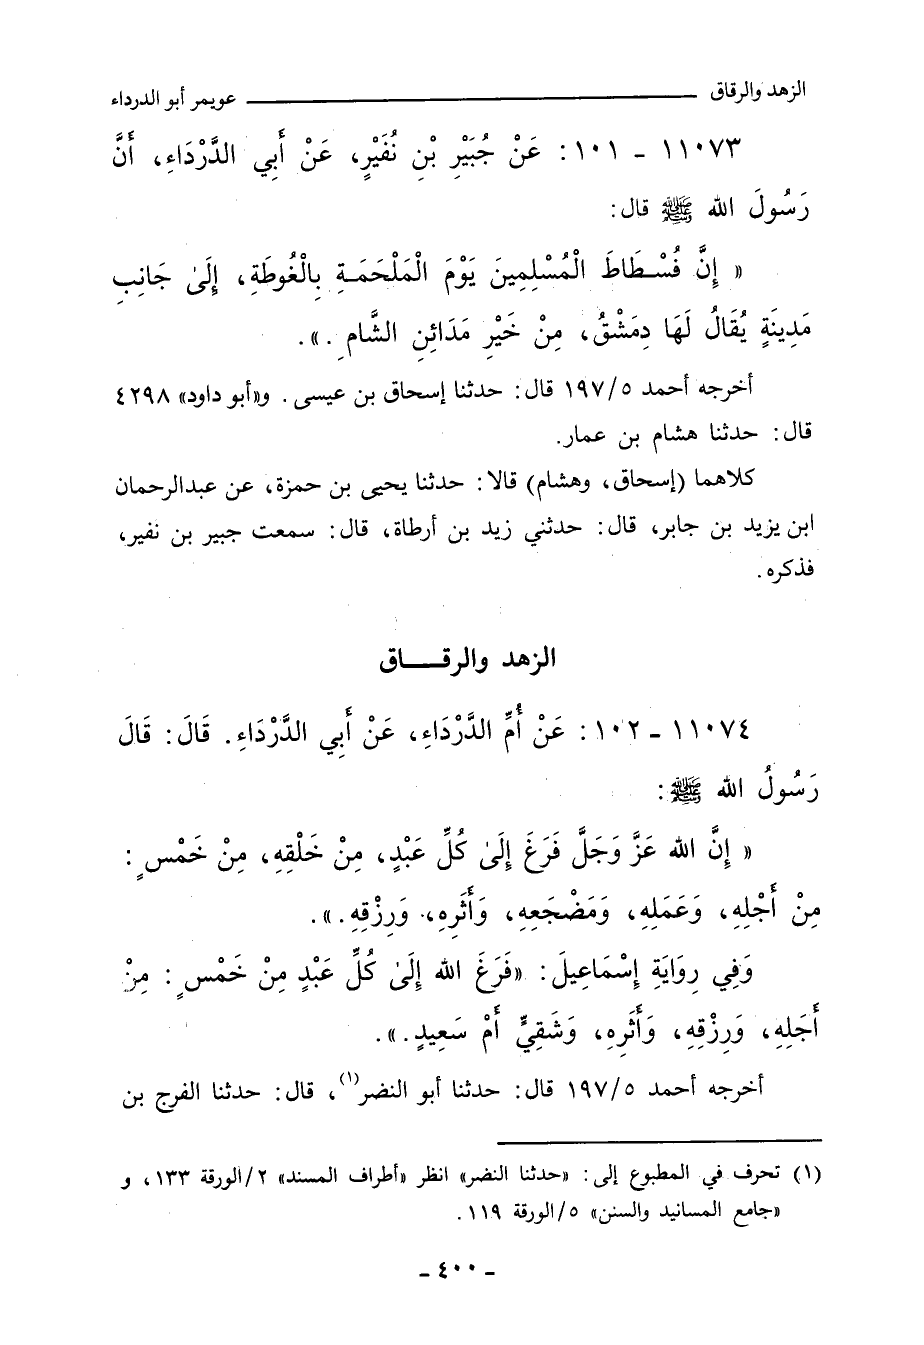 الزهد والرقاق ــــــــــــــــــــ عويمر أبو الدرداء
١١٠٧٣ - ١٠١ : عَنْ جُبَيْرِ بْنِ نُفَيْرٍ، عَنْ أَبِي الدَّرْدَاءِ، أَنَّ
رَسُولَ الله ﷺ قال:
« إِنَّ فُسْطَاطَ الْمُسْلِمِينَ يَوْمَ الْمَلْحَمَةِ بِالْغُوطَةِ، إِلَىٰ جَانِبِ
مَدِينَةٍ يُقَالُ لَهَا دِمَشْقُ، مِنْ خَيْرِ مَدَائِنِ الشَّامِ .».
أخرجه أحمد ١٩٧/٥ قال: حدثنا إسحاق بن عيسى. و«أبو داود» ٤٢٩٨
قال: حدثنا هشام بن عمار.
كلاهما (إسحاق، وهشام) قالا: حدثنا يحيى بن حمزة، عن عبدالرحمان
ابن يزيد بن جابر، قال: حدثني زيد بن أرطاة، قال: سمعت جبير بن نفير،
فذكره.
الزهد والرقـــاق
١١٠٧٤ - ١٠٢ : عَنْ أُمِّ الدَّرْدَاءِ، عَنْ أَبِي الدَّرْدَاءِ. قَالَ: قَالَ
رَسُولُ الله ﷺ:
« إِنَّ الله عَزَّ وَجَلَّ فَرَغَ إِلَىٰ كُلِّ عَبْدٍ، مِنْ خَلْقِهِ، مِنْ خَمْسٍ :
مِنْ أَجْلِهِ، وَعَمَلِهِ، وَمَضْجَعِهِ، وَأَثَرِهِ، وَرِزْقِهِ .».
وَفِي رِوَايَةِ إِسْمَاعِيلَ: «فَرَغَ الله إِلَىٰ كُلِّ عَبْدٍ مِنْ خَمْسٍ : مِنْ
أَجَلِهِ، وَرِزْقِهِ، وَأَثَرِهِ، وَشَقِيٌّ أَمْ سَعِيدٍ .».
أخرجه أحمد ١٩٧/٥ قال: حدثنا أبو النضر(١)، قال: حدثنا الفرج بن
(١) تحرف في المطبوع إلى: «حدثنا النضر» انظر «أطراف المسند» ٢/الورقة ١٣٣، و
«جامع المسانيد والسنن» ٥/الورقة ١١٩.
- ٤٠٠ -